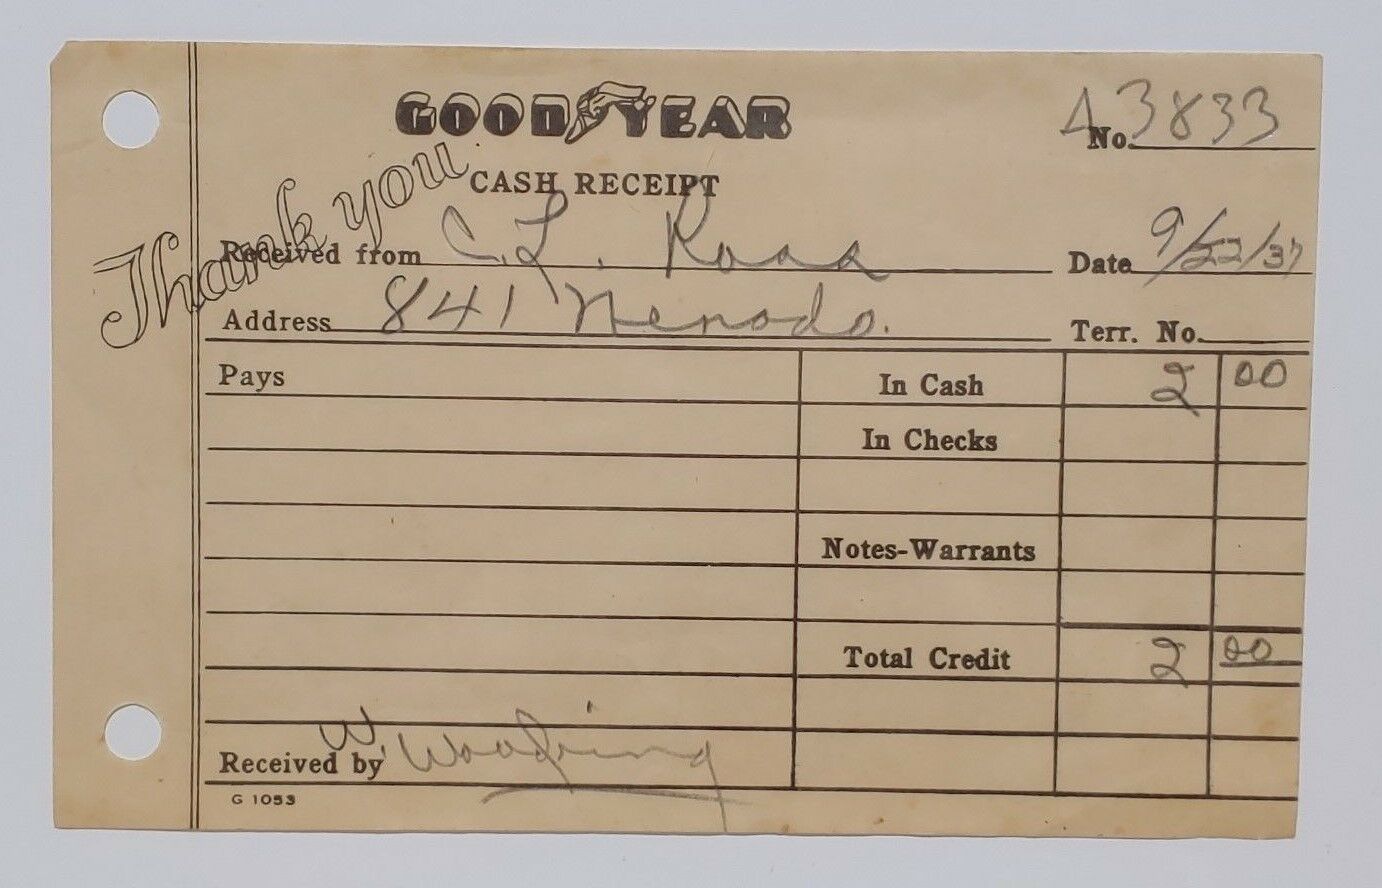 GOODYEAR
No. A3833
Thank you
CASH RECEIPT
Received from C. L. Ross
Date 9/22/37
Address 841
Terr. No.
Pays In Cash 2 00
In Checks
Notes-Warrants
Total Credit 2 00
Received by W.
G 1053